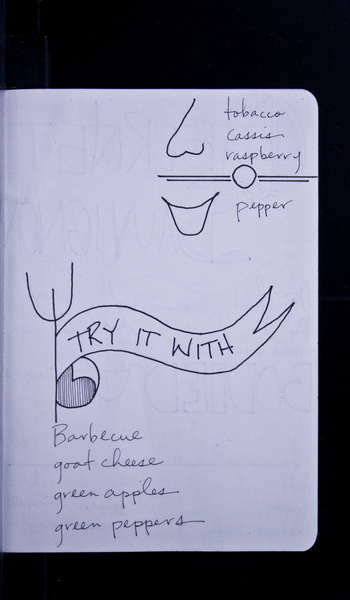 tobacco
cassis
raspberry
pepper
TRY IT WITH
Barbecue
goat cheese
green apples
green peppers